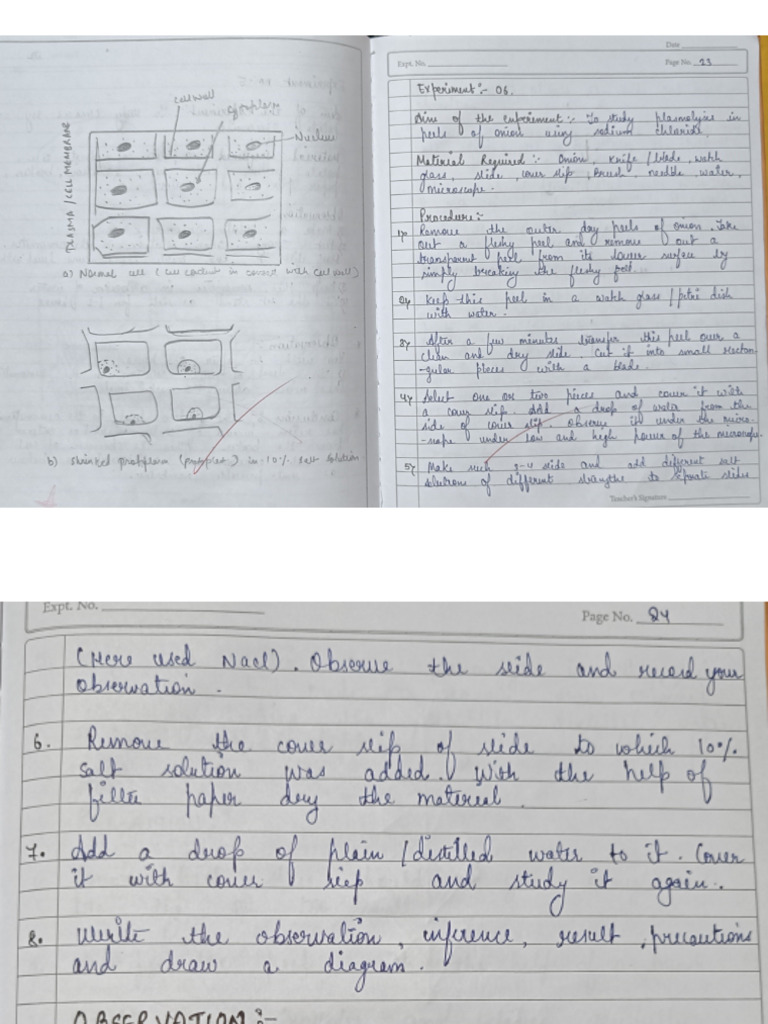 cell wall
Nucleus
PLASMA / CELL MEMBRANE
a) Normal cell (cell content in contact with cell wall)
b) Shrinked protoplasm (protoplast) in 10% salt solution
Date
Expt. No.
Page No. 23
Experiment:- 06.
Aim of the experiment:- To study plasmolysis in
peels of onion using sodium chloride.
Material Required:- Onion, knife / blade, watch
glass, slide, cover slip, Brush, needle, water,
microscope.
Procedure:-
Remove the outer dry peels of onion. Take
out a fleshy peel and remove out a
transparent peel from its lower surface by
simply breaking the fleshy
keep this peel in a watch glass / petri dish
with water.
After a few minutes transfer this peel over a
clean and dry slide. Cut it into small rectan-
-gular pieces with a blade.
Select one or two pieces and cover it with
a cover slip. Add a drop of water from the
side of cover slip. Observe it under the micro-
-scope under low and high power of the
Make such 3-4 slide and add different salt
solutions of different strengths to separate slides
Teacher's Signature
Expt. No.
Page No. 24
(Here used Nacl). Observe the slide and record your
observation.
6. Remove the cover slip of slide to which 10%
salt solution was added. With the help of
filter paper dry the material.
7. Add a drop of plain / distilled water to it. Cover
it with cover slip and study it again.
8. Write the observation, inference, result, precautions
and draw a diagram.
OBSERVATION:-